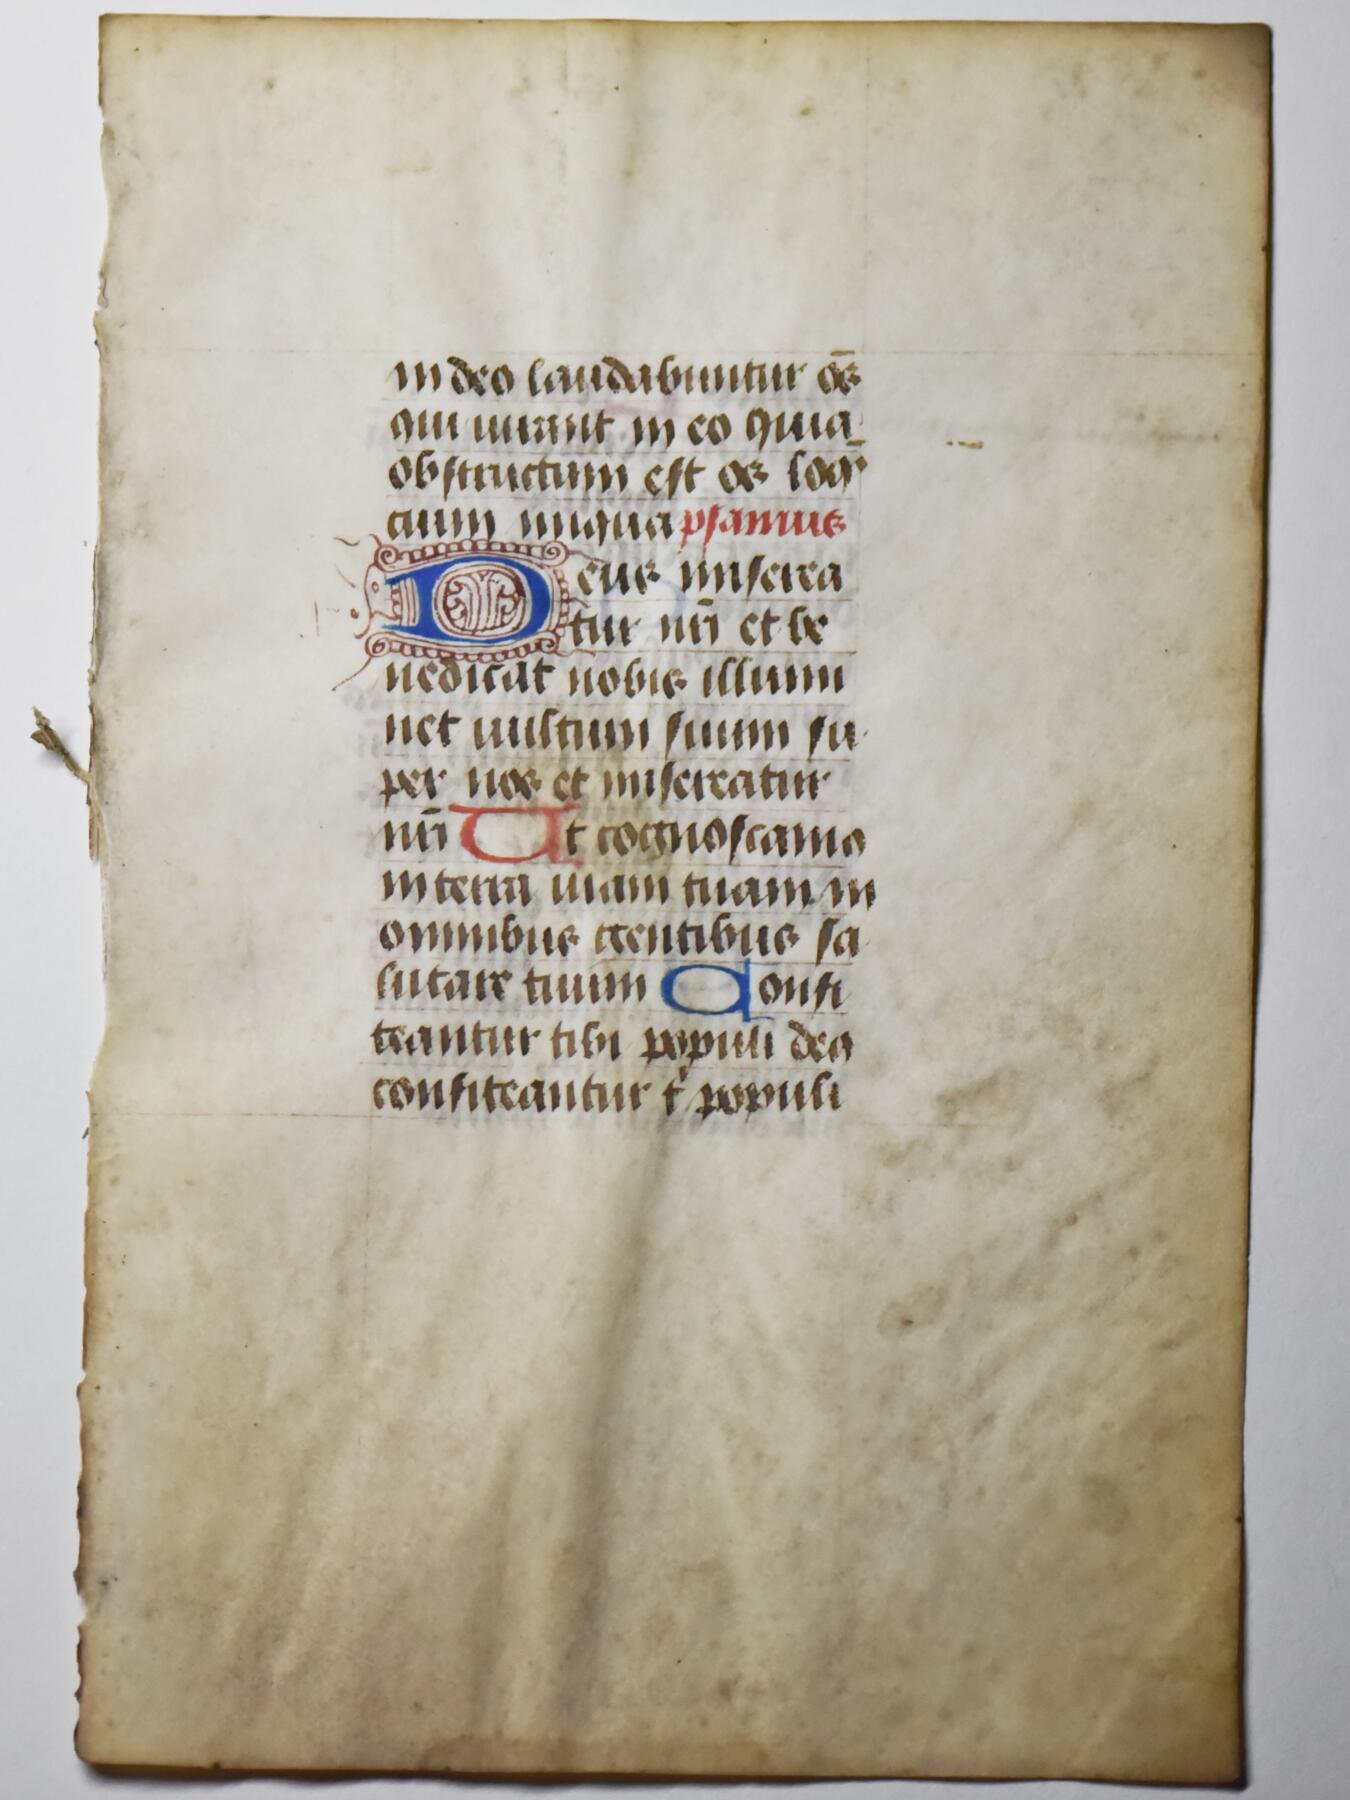 in deo laudabuntur oēs
qui iurant in eo quia
obstructum est os loq̄
cium iniqua psamus
Deus miserea
tur nr̄i et be
nedicat nobis illumi
net uultum suum su
per nos et misereatur
nr̄i Ut cognoscamꝰ
in terra uiam tuam in
omnibus gentibus sa
lutare tuum Confi
teantur tibi populi deꝰ
confiteantur t populi